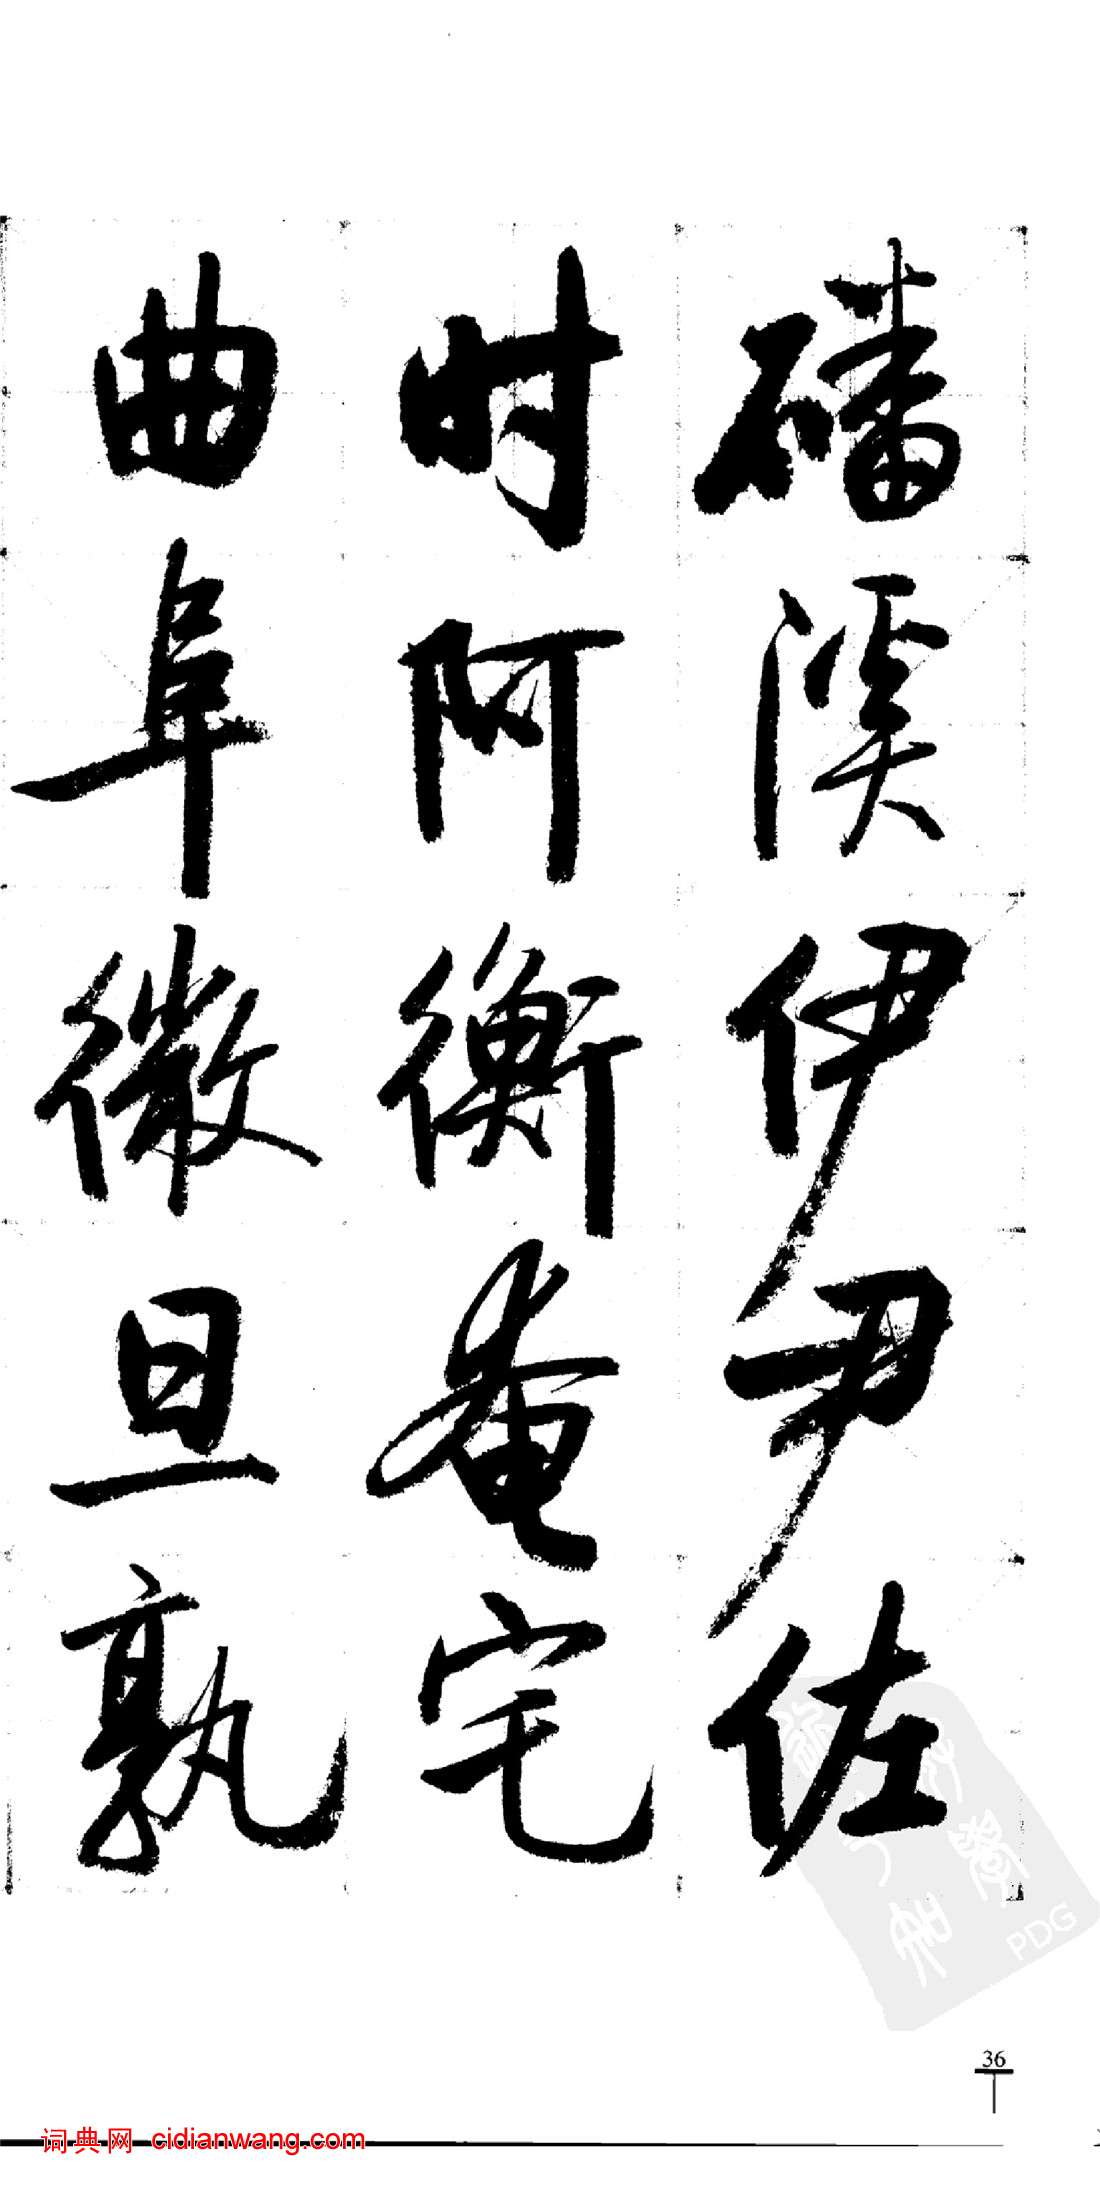 磻溪伊尹佐
时阿衡奄宅
曲阜微旦孰
PDG
36
词典网 cidianwang.com